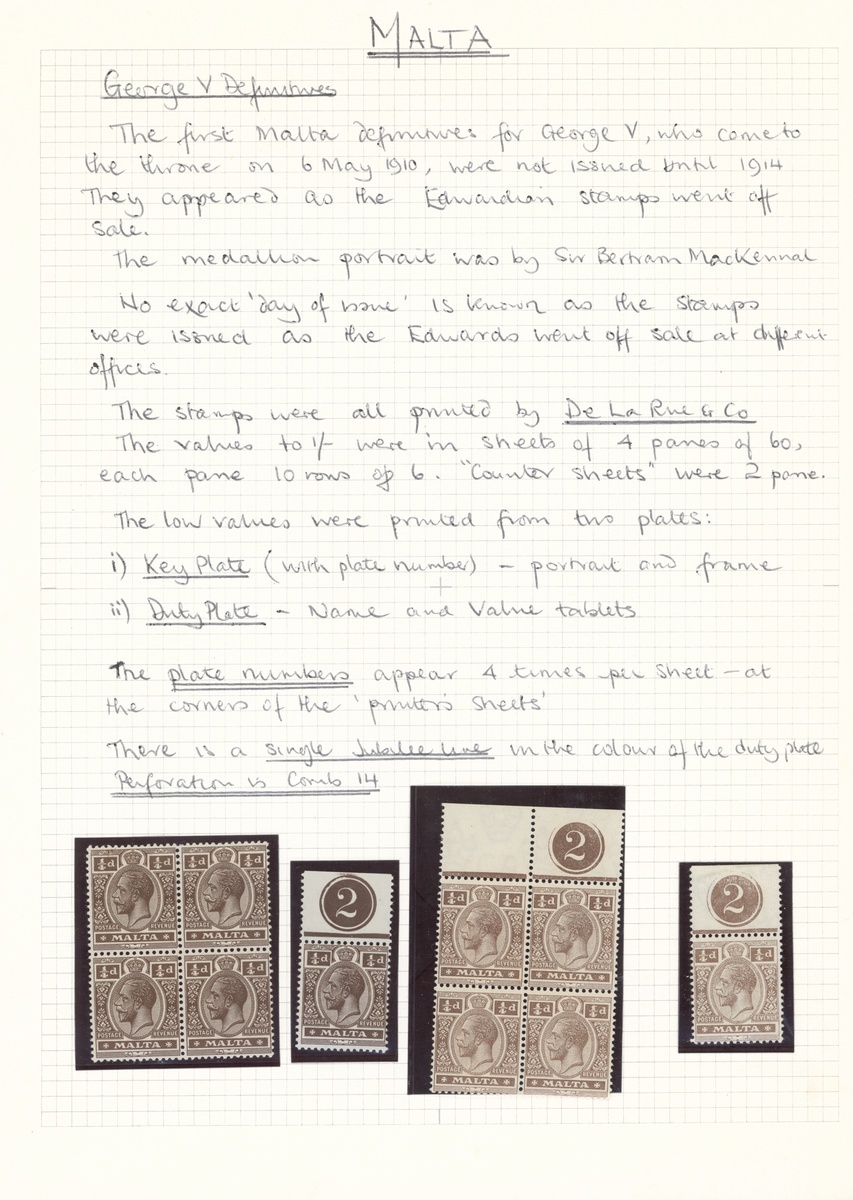 MALTA
George V Definitives
The first Malta definitives for George V, who come to
the throne on 6 May 1910, were not issued until 1914
They appeared as the Edwardian stamps went off
sale.
The medallion portrait was by Sir Bertram MacKennal
No exact 'day of issue' is known as the stamps
were issued as the Edwards went off sale at different
offices.
The stamps were all printed by De La Rue & Co
The values to 1/- were in sheets of 4 panes of 60,
each pane 10 rows of 6. "Counter sheets" were 2 pane.
The low values were printed from two plates:
i) Key Plate (with plate number) - portrait and frame
ii) Duty Plate - Name and Value tablets
The plate numbers appear 4 times per sheet - at
the corners of the 'printers sheets'
There is a single Jubilee line in the colour of the duty plate
Perforation is Comb 14
¼d ¼d ¼d ¼d
POSTAGE REVENUE POSTAGE REVENUE
MALTA MALTA
¼d ¼d ¼d ¼d
POSTAGE REVENUE POSTAGE REVENUE
MALTA MALTA
2
¼d ¼d
POSTAGE REVENUE
MALTA
2
¼d ¼d ¼d ¼d
POSTAGE REVENUE POSTAGE REVENUE
MALTA MALTA
¼d ¼d ¼d ¼d
POSTAGE REVENUE POSTAGE REVENUE
MALTA MALTA
2
¼d ¼d
POSTAGE REVENUE
MALTA